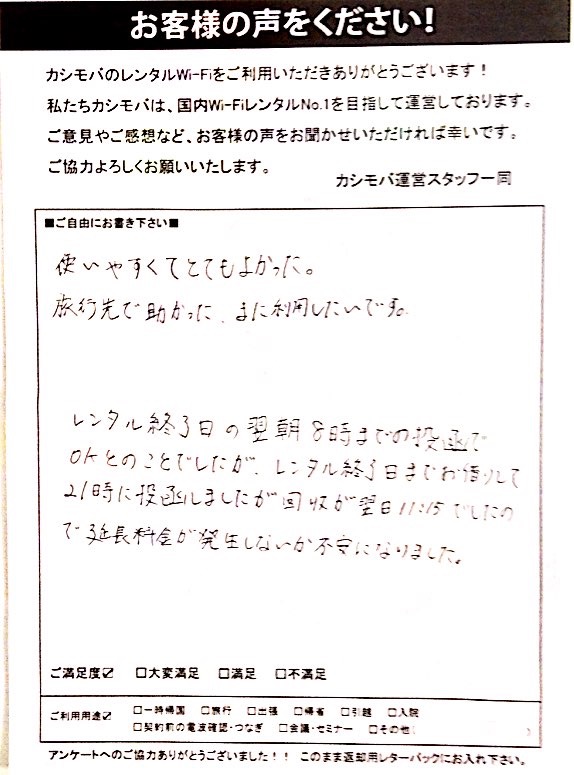 お客様の声をください！
カシモバのレンタルWi-Fiをご利用いただきありがとうございます！
私たちカシモバは、国内Wi-FiレンタルNo.1を目指して運営しております。
ご意見やご感想など、お客様の声をお聞かせいただければ幸いです。
ご協力よろしくお願いいたします。
カシモバ運営スタッフ一同
■ご自由にお書き下さい■
使いやすくてとてもよかった。
旅行先で助かった、また利用したいです。
レンタル終了日の翌朝8時までの投函で
OKとのことでしたが、レンタル終了日までお借りして
21時に投函しましたが回収が翌日11:15でしたの
で延長料金が発生しないか不安になりました。
ご満足度☑ □大変満足 □満足 □不満足
ご利用用途☑ □一時帰国 □旅行 □出張 □帰省 □引越 □入院
□契約前の電波確認・つなぎ □会議・セミナー □その他（ ）
アンケートへのご協力ありがとうございました！！ このまま返却用レターパックにお入れ下さい。